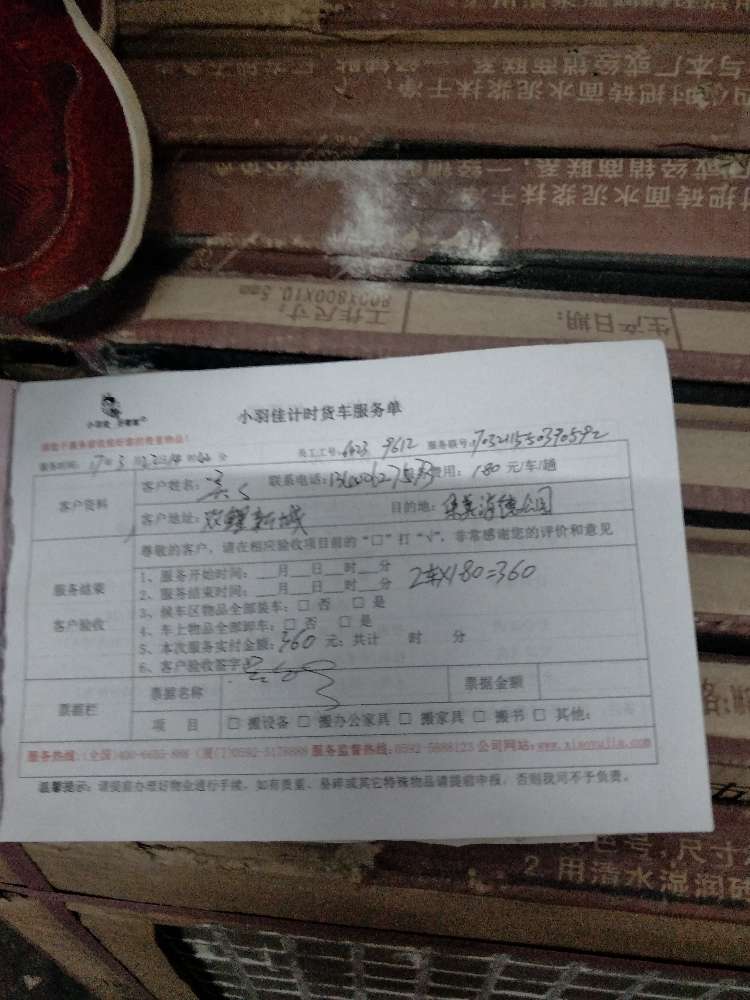 与本厂或经销商联系
时把砖面水泥浆抹干净;
或经销商联系,一经铺贴
时把砖面水泥浆抹干净
工作尺寸:
800X800X10.5mm
生产日期:
小羽佳计时货车服务单
服务时间: 17年3
员工工号: 6423 9612 服务联号: 1703211550390592
客户资料
客户姓名:
联系电话:
费用: 180 元/车/趟
客户地址: 双鲤新城
目的地:
尊敬的客户,请在相应验收项目前的“□”打“√”,非常感谢您的评价和意见
服务结束
客户验收
1、服务开始时间: __月__日__时__分
2、服务结束时间: __月__日__时__分
2车X180=360
3、候车区物品全部装车: □ 否 □ 是
4、车上物品全部卸车: □ 否 □ 是
5、本次服务实付金额: 360 元; 共计 时 分
6、客户验收签字:
票据栏
票据名称
票据金额
项 目
□ 搬设备 □ 搬办公家具 □ 搬家具 □ 搬书 □ 其他:
服务热线:(全国)400-6655-888 (厦门)0592-5178888 服务监督热线:0592-5888123 公司网站:www.xiaoyujia.com
温馨提示: 请提前办理好物业通行手续, 如有贵重、易碎或其它特殊物品请提前申报, 否则我司不予负责。
色号,尺寸
2 用清水湿润砖